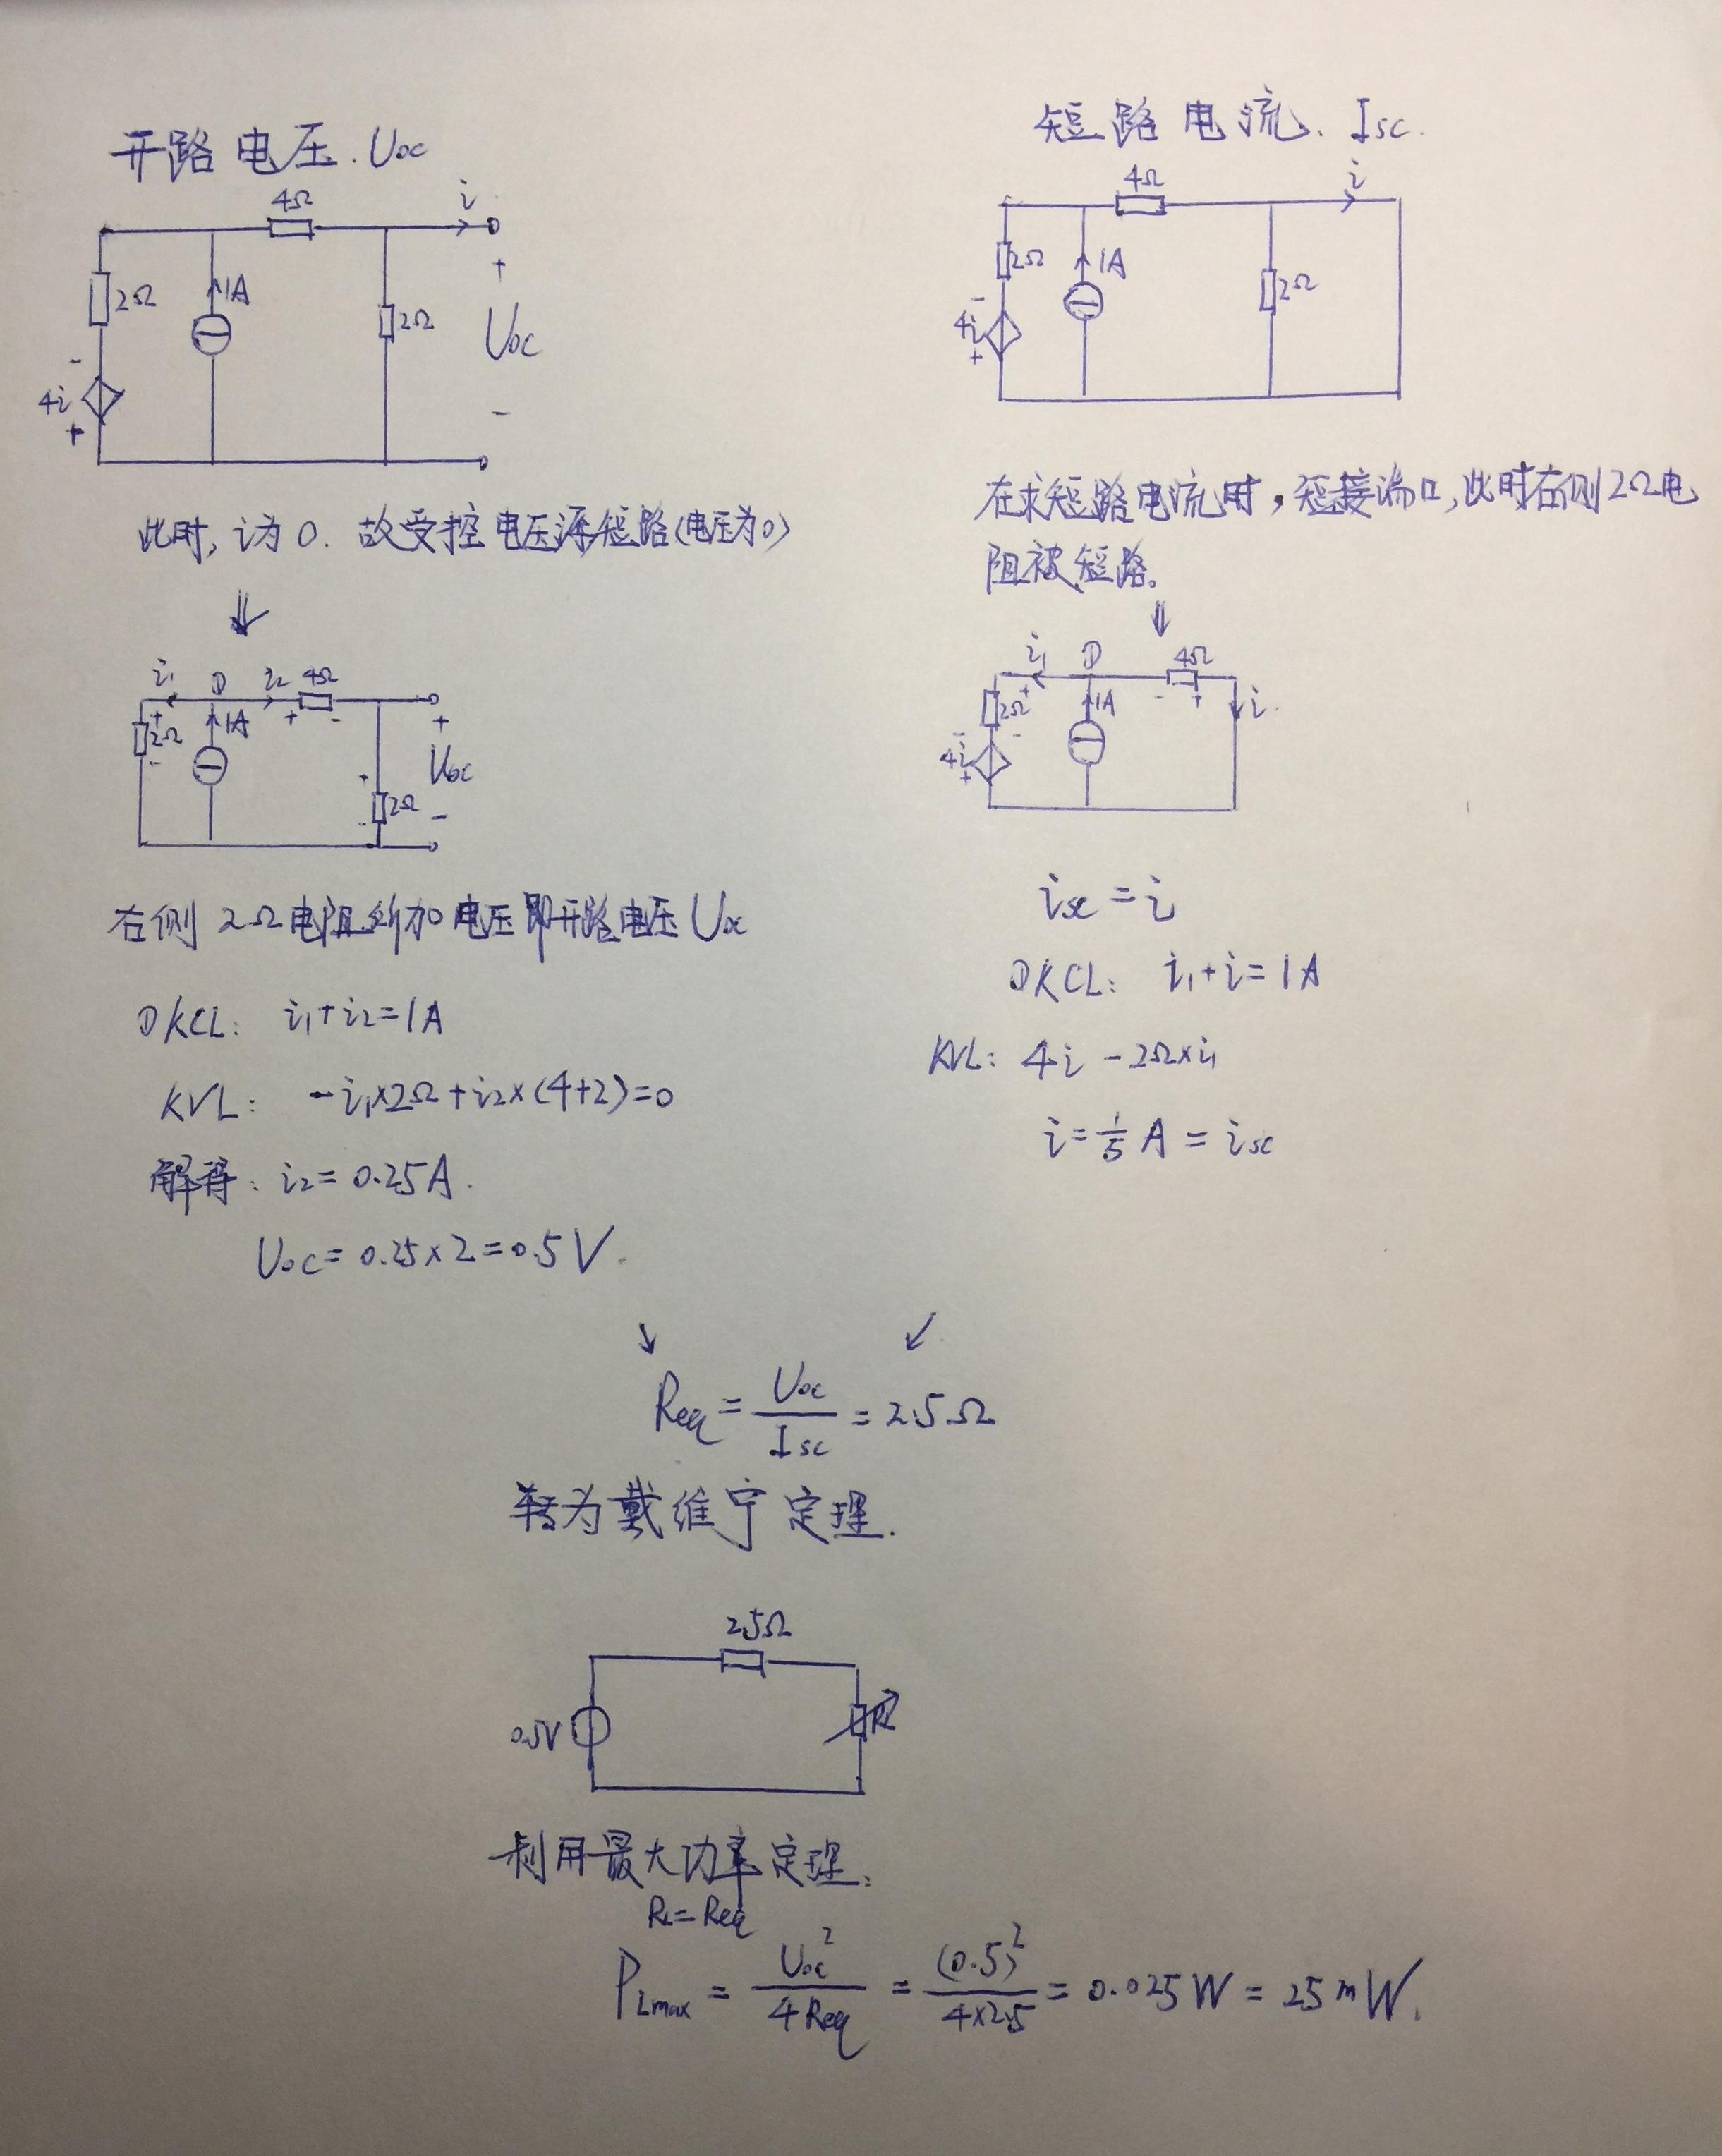 开路电压. Uoc
4Ω
i
2Ω
1A
2Ω
+
Uoc
-
-
4i
+
此时, i为0. 故受控电压源短路(电压为0)
⇓
i₁
①
i₂
4Ω
+
-
+
2Ω
-
1A
+
Uoc
-
+
2Ω
-
右侧 2Ω电阻所加电压即开路电压 Uoc
①KCL: i₁+i₂=1A
KVL: -i₁×2Ω+i₂×(4+2)=0
解得: i₂=0.25A.
Uoc=0.25×2=0.5V.
短路电流. Isc.
4Ω
i
2Ω
1A
2Ω
-
4i
+
在求短路电流时,短接端口,此时右侧2Ω电
阻被短路。
⇓
i₁
①
4Ω
-
+
+
2Ω
-
1A
i
-
4i
+
isc=i
①KCL: i₁+i=1A
KVL: 4i-2Ω×i₁
i=1/5 A=isc
↘ ↙
Req=Uoc/Isc=2.5Ω
转为戴维宁定理.
2.5Ω
0.5V
RL
利用最大功率定理.
RL=Req
PLmax=Uoc²/4Req=(0.5)²/4×2.5=0.025W=25mW.